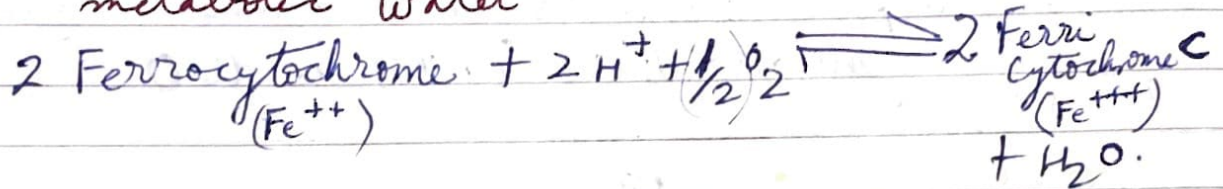 metabolic water
2 Ferrocytochrome + 2H⁺ + 1/2 O₂ ⇌ 2 Ferri Cytochrome C
(Fe⁺⁺) (Fe⁺⁺⁺)
+ H₂O.